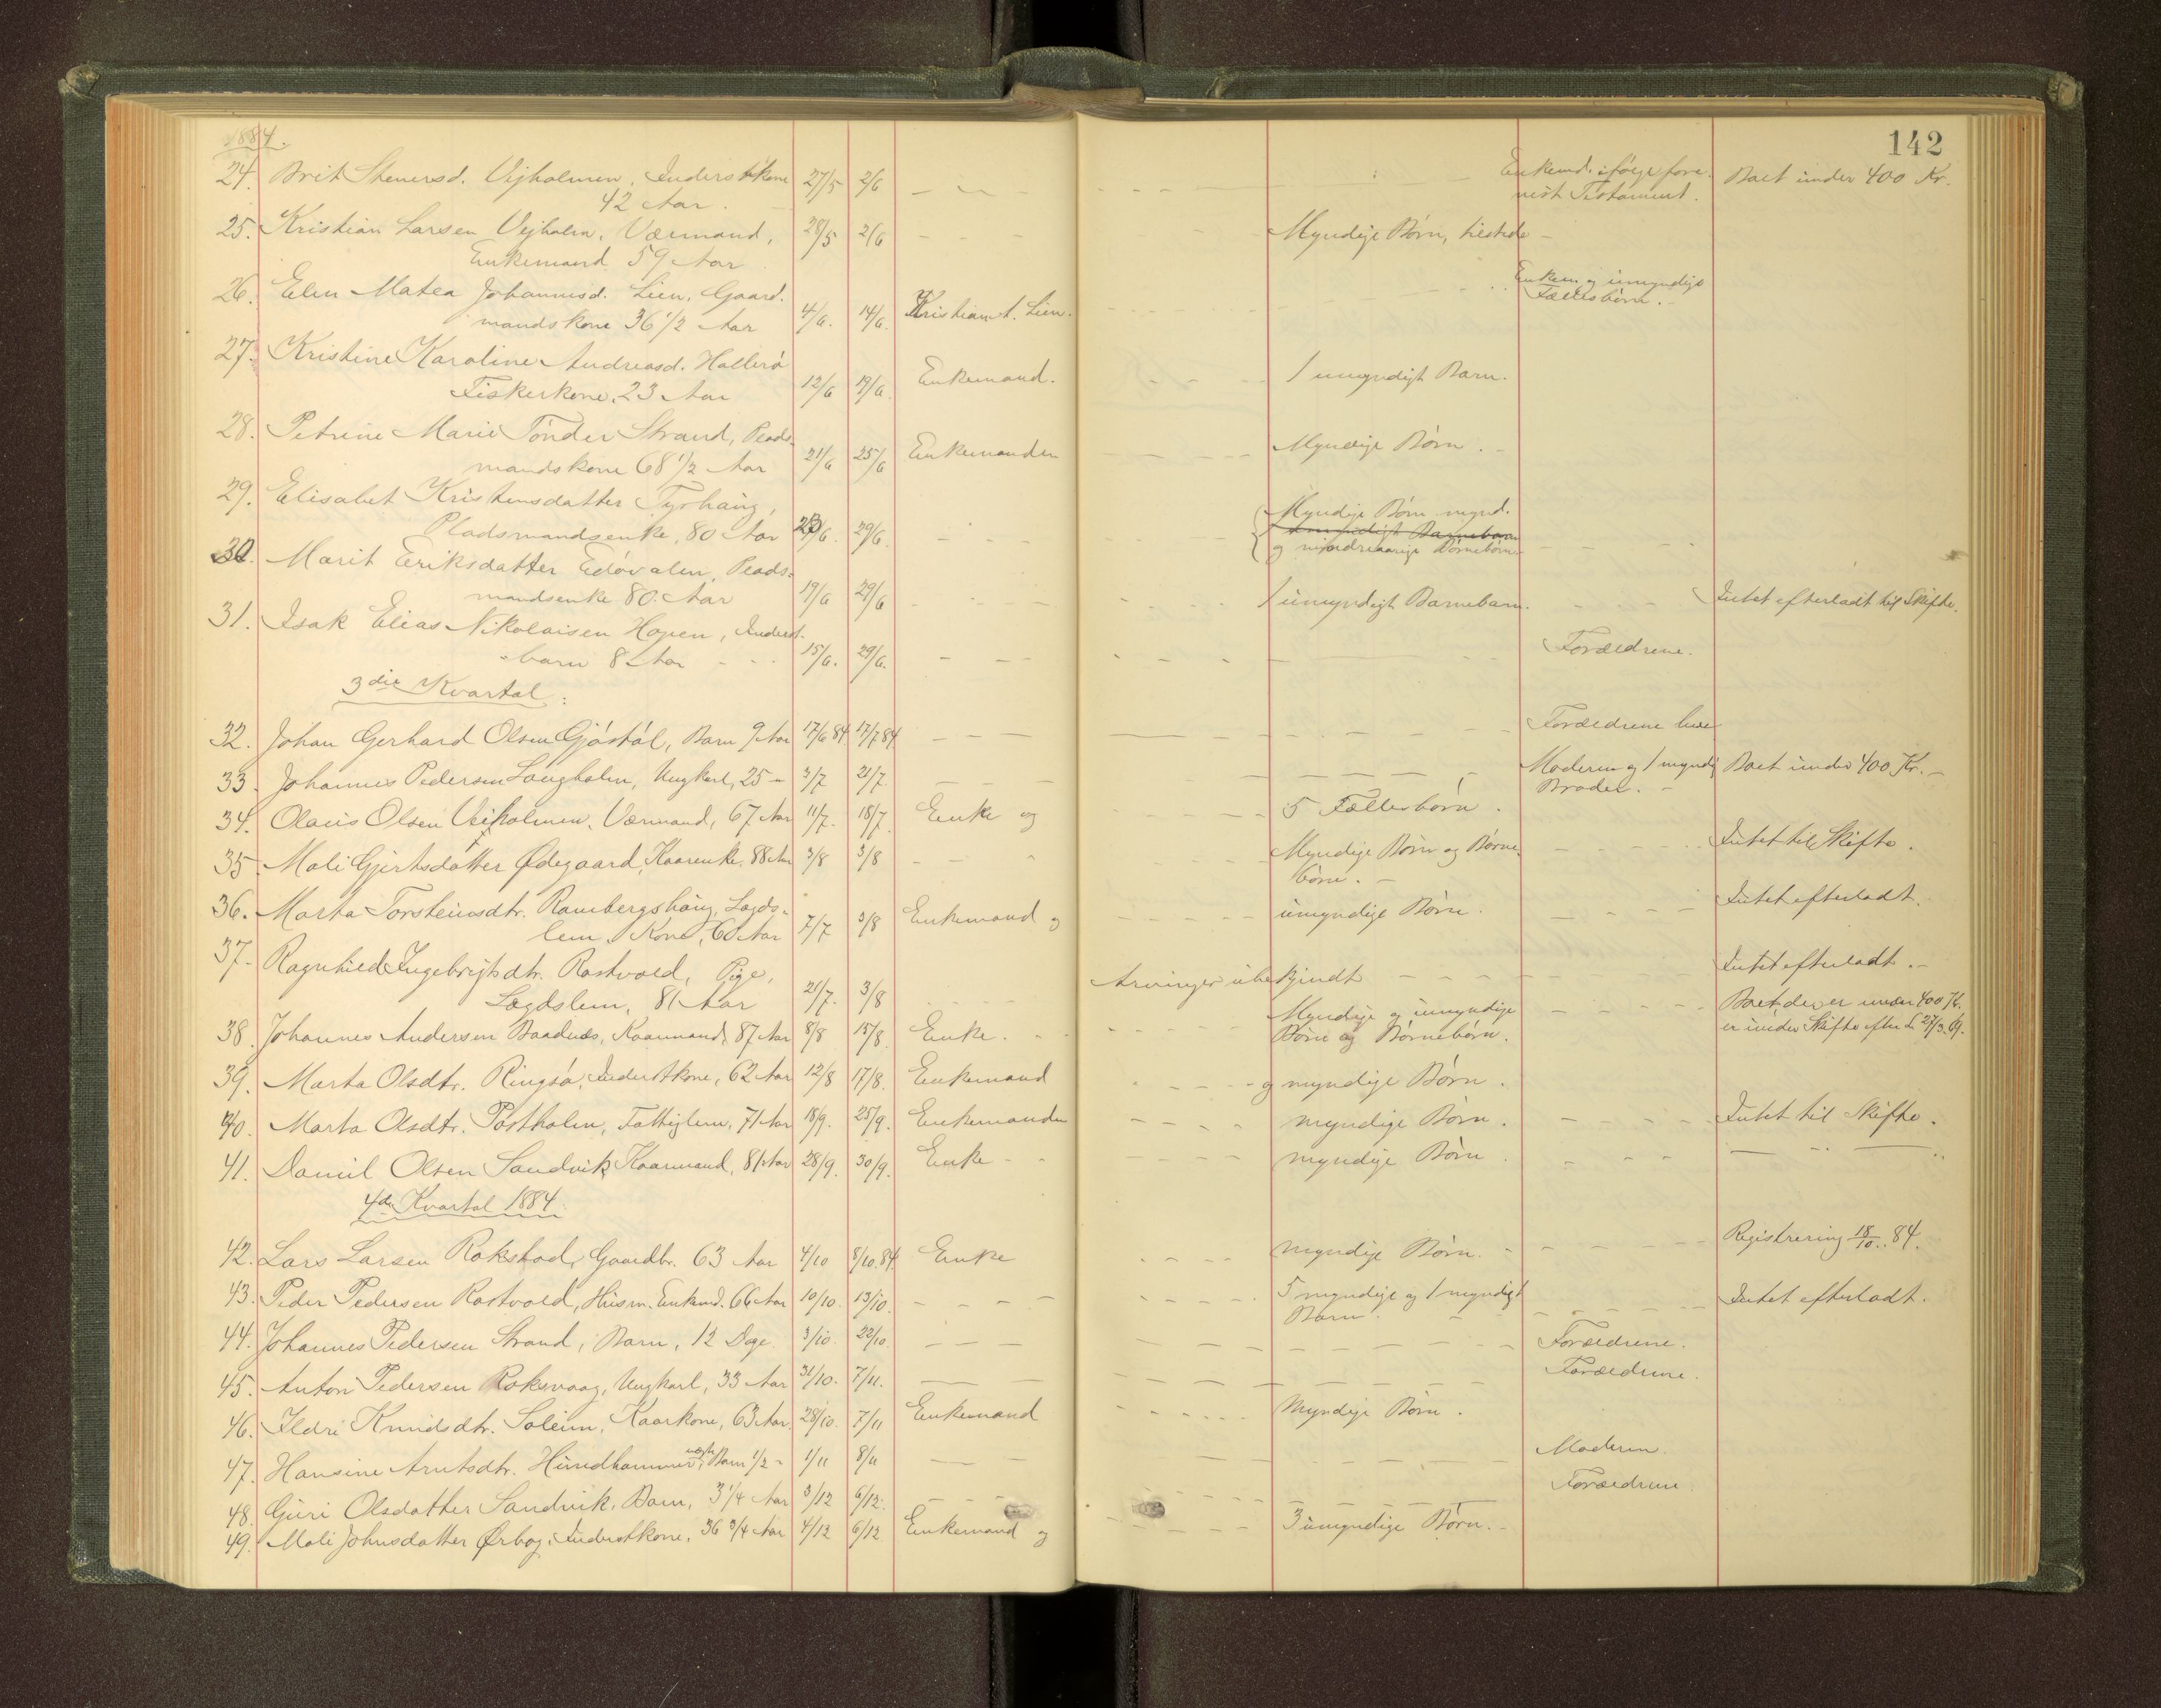 142
1884.
24. Brit Stenersd. Vejholmen, Inderstkone 27/5 2/6 Enkemd. ifølge fore- Boet under 400 Kr.
42 Aar. nist Testament.
25. Kristian Larsen Vejholm, Værmand, 28/5 2/6 Myndige Børn, tilstede
Enkemand 59 Aar
26. Elen Matea Johannesd. Lien, Gaard- Enkem. og umyndige
mandskone 36 1/2 Aar 4/6. 14/6. Kristian A. Lien. Fællesbørn.
27. Kristine Karoline Andreasd. Hallerö
Fiskerkone, 23 Aar 12/6 19/6. Enkemand. 1 umyndigt Barn.
28. Petrine Marie Tönder Strand, Plads-
mandskone 68 1/2 Aar 21/6 25/6 Enkemanden Myndige Børn.
29. Elisabet Kristensdatter Tyrhaug, Myndige Børn mynd.
Pladsmandsenke, 80 Aar 29/6. og mindreaarige Børnebørn.
30. Marit Eriksdatter Edövalen, Plads-
mandsenke 80. Aar 19/6 29/6 1 umyndigt Barnebarn. Intet efterladt til Skifte.
31. Isak Elias Nikolaisen Hopen, Inderst-
barn 8 Aar 15/6. 29/6. Forældrene.
3die Kvartal:
32. Johan Gerhard Olsen Gjöstöl, Barn 9 Aar 17/6 84 17/7 84 Forældrene
33. Johannes Pedersen Langholm, Ungkarl, 25 " 3/7 21/7 Moderen og 1 myndig Boet under 400 Kr.
Broder.
34. Olaus Olsen Veiholmen, Værmand, 67 Aar 11/7. 18/7 Enke og 5 Fællesbörn.
35. Mali Gjertsdatter Ødegaard, Kaarenke, 88 Aar 3/8 3/8 Myndige Børn og Børne- Intet til Skifte.
børn.
36. Marta Torsteinsdtr. Rambergshaug, Lægds- Intet efterladt.
lem, Kone, 60 Aar 7/7 3/8 Enkemand og umyndige Børn.
37. Ragnhild Ingebrigtsdtr. Rostvold, Pige, Arvinger ubekjendt Intet efterladt.
Lægdslem, 81 Aar 21/7. 3/8
38. Johannes Andersen Baadnes, Kaarmand, 87 Aar 8/8 15/8. Enke. Myndige og umyndige Boet, der er under 400 K.
Børn og Børnebørn. er under Skifte efter L. 27/3 69.
39. Marta Olsdtr. Ringsö, Inderstkone, 62 Aar 12/8 17/8. Enkemand og myndige Børn.
40. Marta Olsdtr. Postholm, Fattiglem, 71 Aar 18/9. 25/9. Enkemanden myndige Børn. Intet til Skifte.
41. Daniel Olsen Sandvik, Kaarmand, 81 Aar 28/9. 30/9. Enke myndige Børn
4de Kvartal 1884.
42. Lars Larsen Rokstad, Gaardbr. 63 Aar 4/10 8/10.84. Enke myndige Børn. Registrering 18/10. 84.
43. Peder Pedersen Rostvold, Husm. Enkemd. 66 Aar 10/10. 13/10. 5 myndige og 1 myndigt Intet efterladt.
Barn.
44. Johannes Pedersen Strand, Barn, 12 Dage. 3/10. 22/10. Forældrene.
45. Anton Pedersen Roksvaag, Ungkarl, 33 Aar 31/10. 7/11. Forældrene.
46. Ildri Knudsdtr. Soleim, Kaarkone, 63 Aar. 28/10. 7/11 Enkemand Myndige Børn.
47. Hansine Arntsdtr. Hundhammer, uægte Barn 1/2 " 1/11 8/11 Moderen.
48. Guri Olsdatter Sandvik, Barn, 3 1/4 Aar 3/12 6/12. Forældrene
49. Mali Johnsdatter Ørbog, Inderstkone, 36 3/4 Aar 4/12 6/12 Enkemand og 3 umyndige Børn.